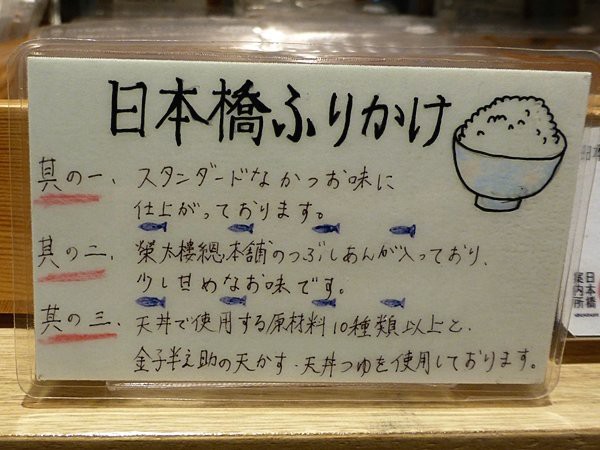 日本橋ふりかけ
其の一、スタンダードなかつお味に
仕上がっております。
其の二、榮太樓總本舗のつぶしあんが入っており、
少し甘めなお味です。
其の三、天丼で使用する原材料10種類以上と、
金子半之助の天かす・天丼つゆを使用しております。
日本橋
案内所